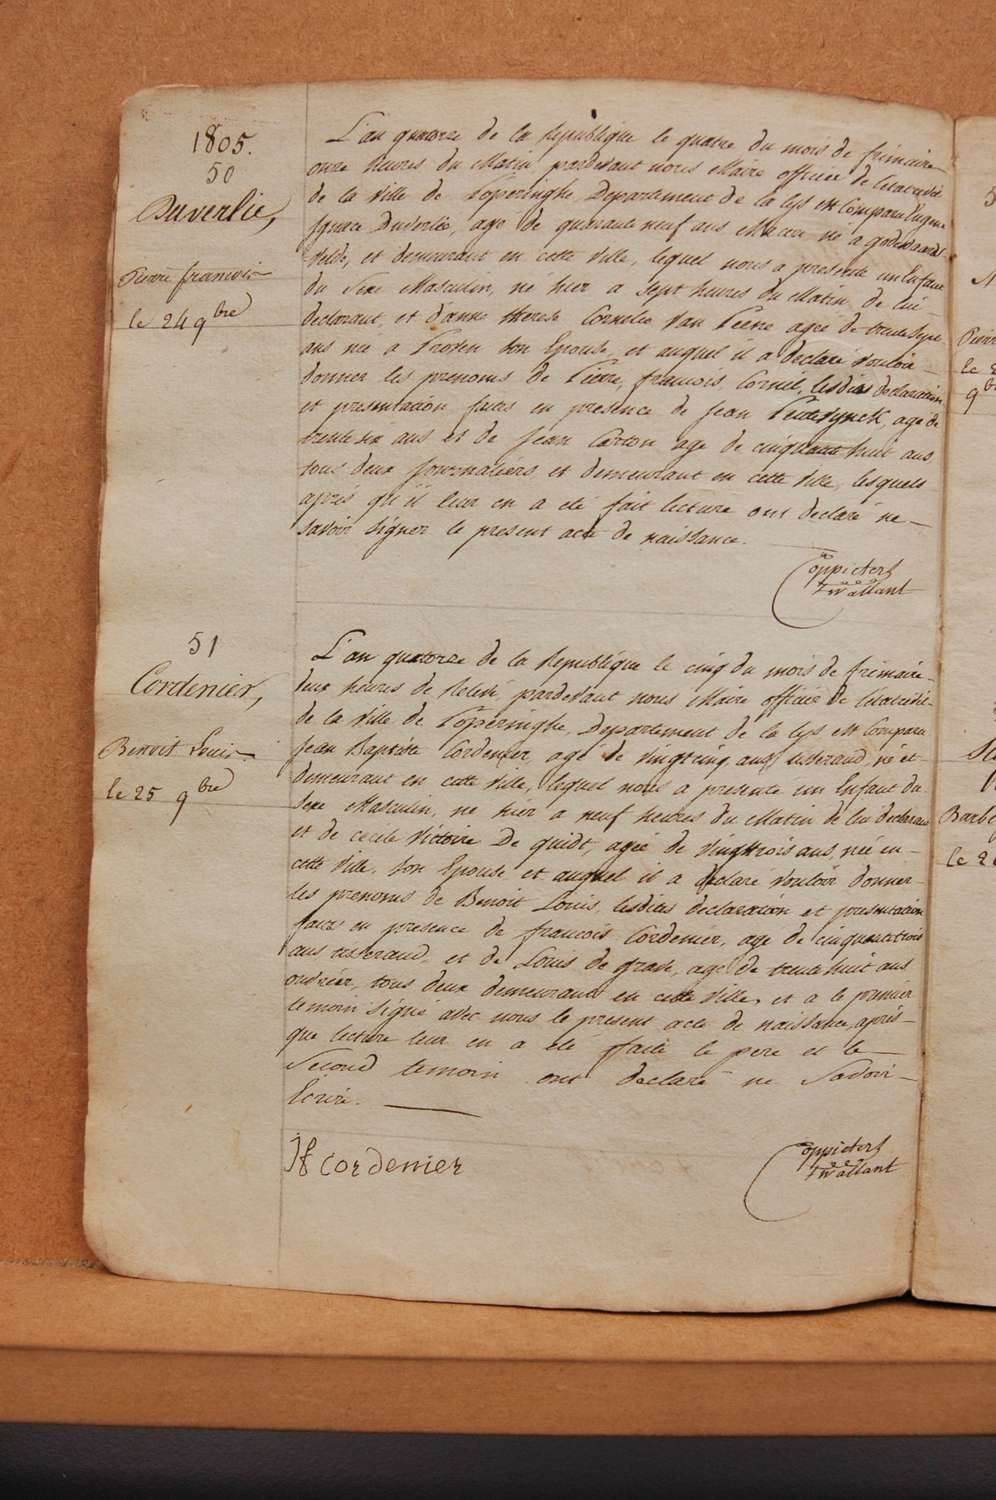 1805.
50
Duverlie,
Pierre francois
le 24 9bre
L'an quatorze de la Republique le quatre du mois de frimaire
onze heures du Matin pardevant nous Maire officier de l'état civil
de la Ville de Poperinghe Departement de la Lys est Comparu Eugene
Ignace Duverlie, agé de quarante neuf ans né a
velde, et demeurant en cette Ville, lequel nous a presenté un Enfant
du Sexe Masculin, né hier a Sept heures du Matin, de lui
declarant, et d'anne therese Cornelie Van Peene agée de trente Sept
ans née a Proven son Epouse, et auquel il a declaré vouloir
donner les prenoms de Pierre, francois, Cornil, lesdites declaration
et presentation faites en presence de Jean agé de
trente six ans et de Jean Carton agé de cinquante huit ans
tous deux Journaliers et demeurant en cette Ville, lesquels
après qu'il leur en a eté fait lecture ont declaré ne
savoir signer le present acte de naissance.
Coppieters
Twallant
51
Cordenier,
Benoit Louis
le 25 9bre
L'an quatorze de la Republique le cinq du mois de frimaire
deux heures de Relevé, pardevant nous Maire officier de l'état civil
de la Ville de Poperinghe, Departement de la Lys est Comparu
Jean Baptiste Cordenier, agé de vingt cinq ans, tisserand, né et
demeurant en cette Ville, lequel nous a presenté un Enfant du
Sexe Masculin, né hier a neuf heures du Matin de lui declarant
et de cecile Victoire De quidt, agée de vingttrois ans, née en
cette Ville, son Epouse et auquel il a declaré vouloir donner
les prenoms de Benoit Louis, lesdites declaration et presentation
faites en presence de francois Cordenier, agé de cinquantetrois
ans tisserand, et de Louis de grave, agé de trente huit ans
ouvrier, tous deux demeurant en cette Ville, et a le premier
temoin signé avec nous le present acte de naissance, après
que lecture leur en a eté faite le pere et le
Second temoin ont declaré ne Savoir
Ecrire.
JF cordenier
Coppieters
Twallant